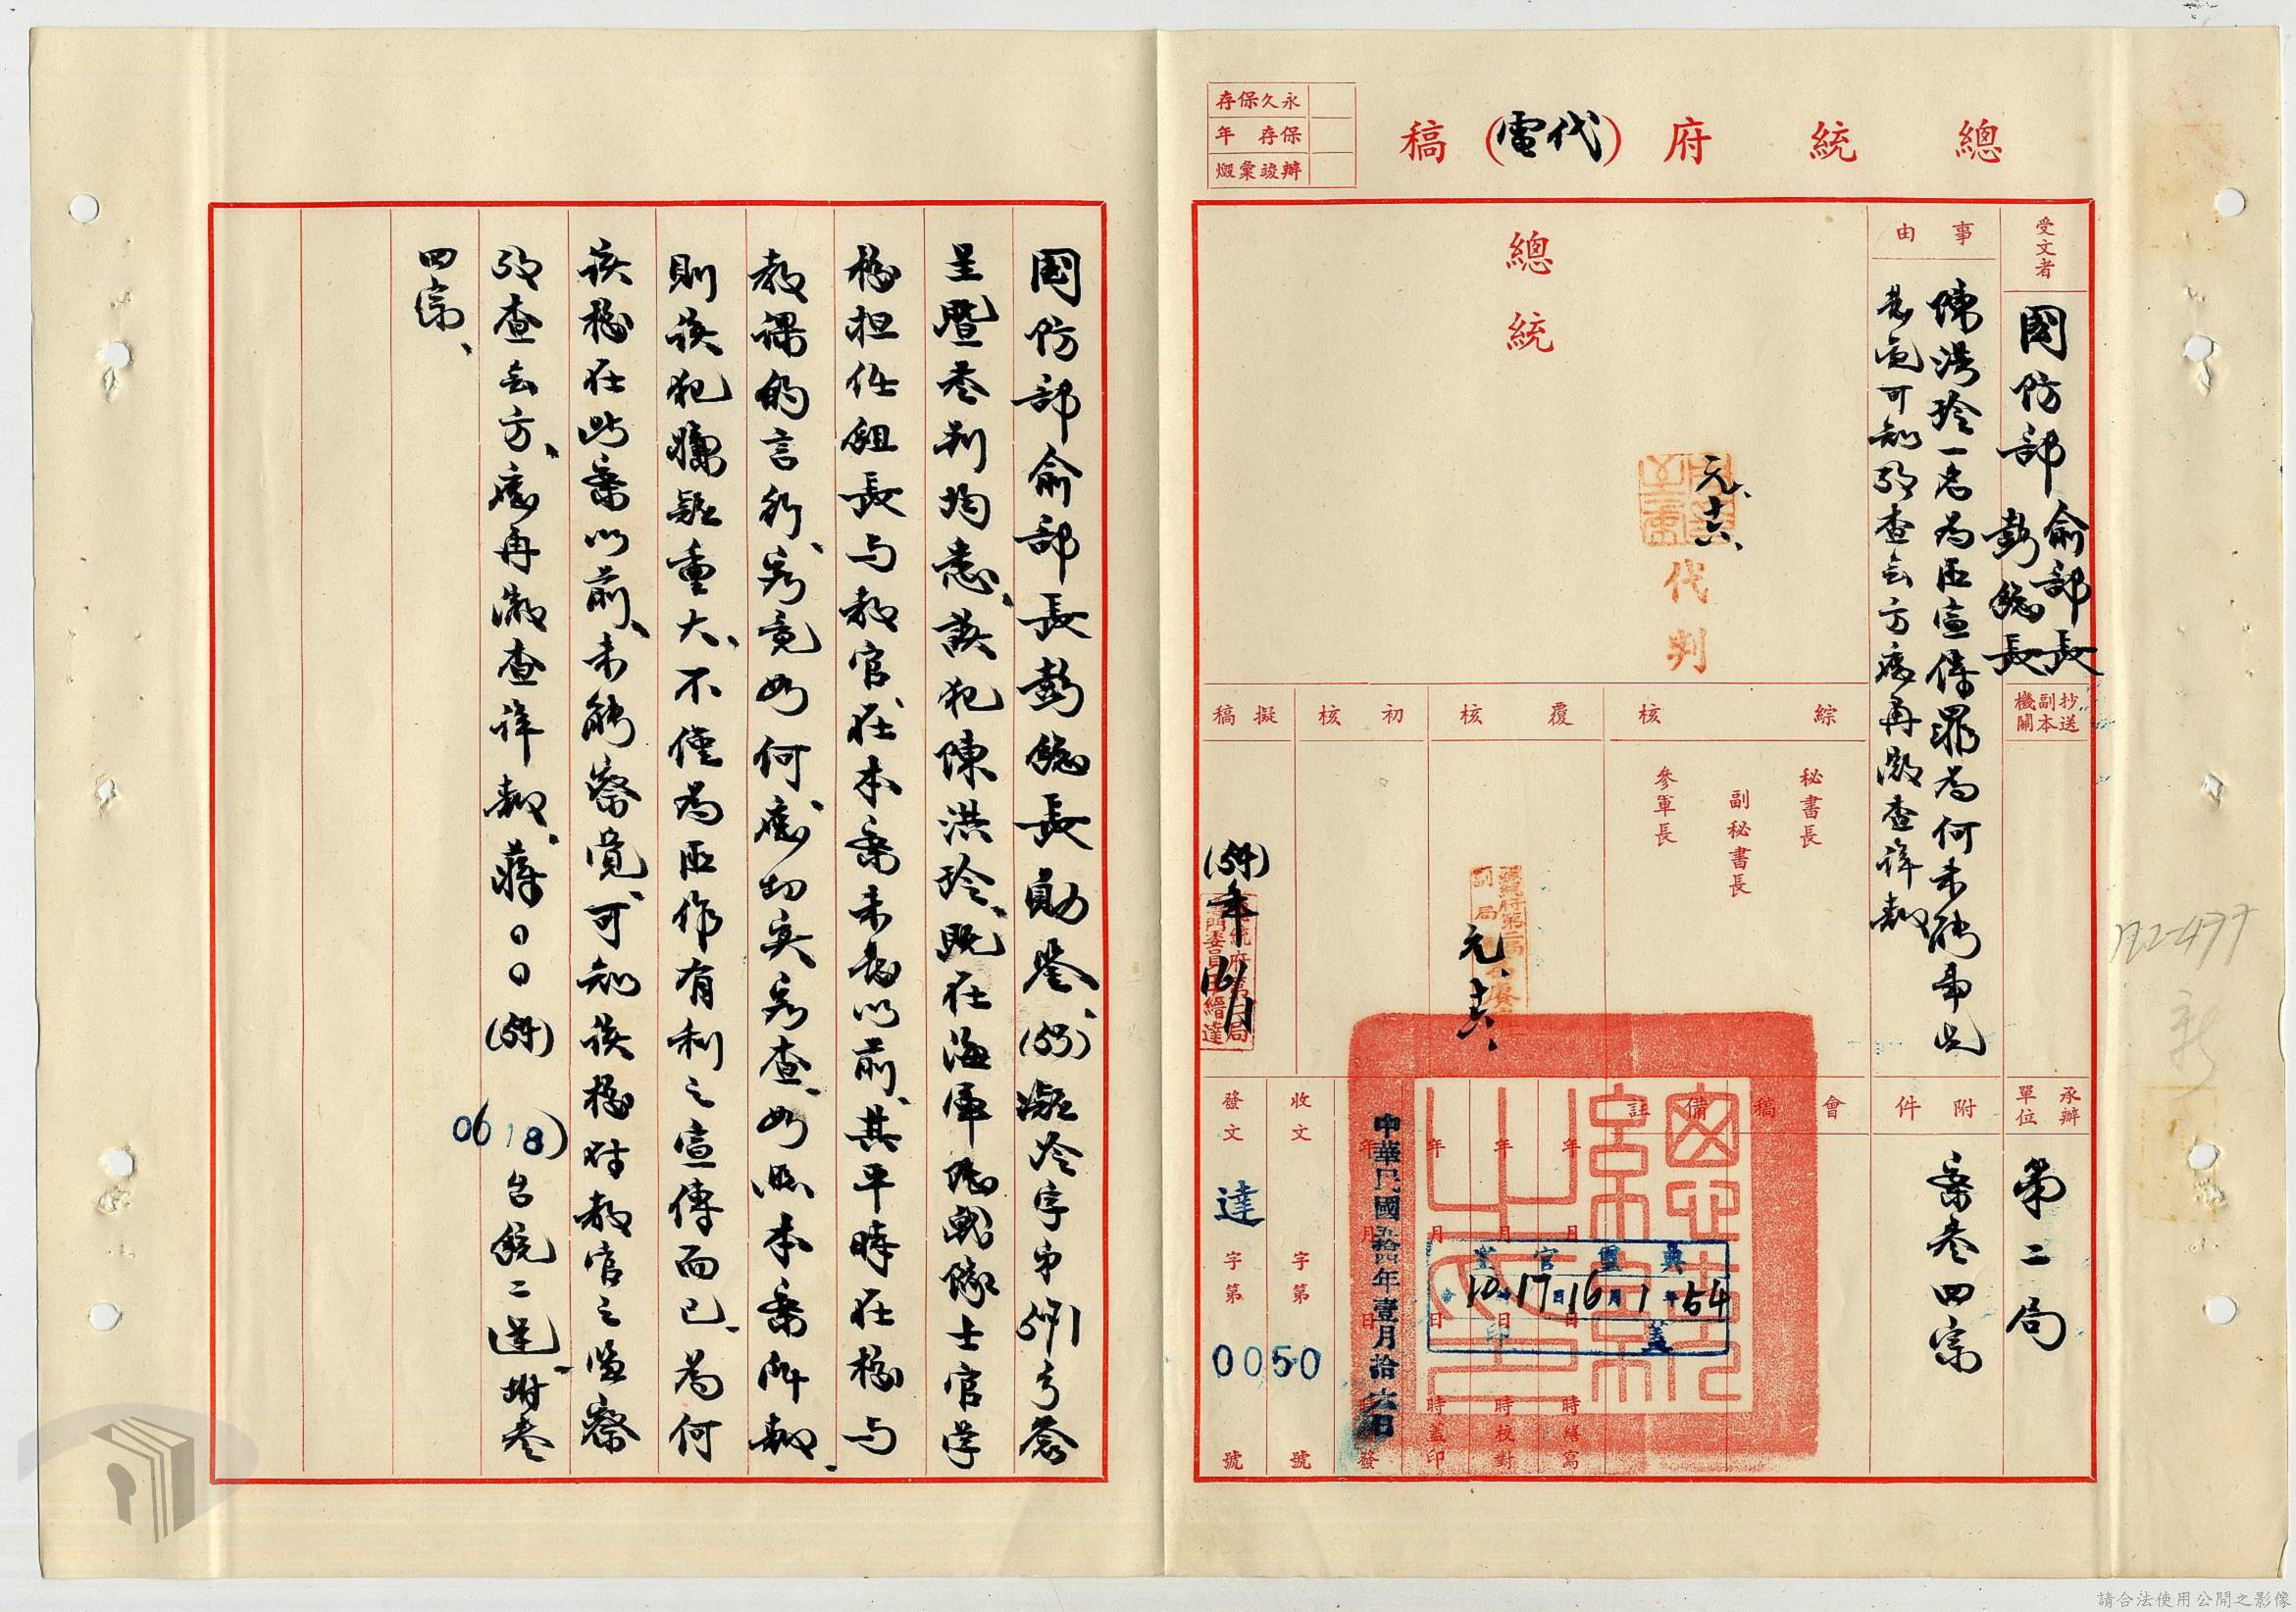 總統府(代電)稿
永久保存
保存 年
辦竣彙燬
受文者
國防部 俞部長
彭總長
抄送副本機關
承辦單位
第二局
事由
陳洪玲一名為匪宣傳罪為何未能早先
覺可知考查無方應再澈查詳報
附件
案卷四宗
總統
元、十六、
代判
綜核
覆核
初核
擬稿
秘書長
副秘書長
參軍長
元、十六、
(54)年 月
會稿備註
年 月 日 時繕寫
年 月 日 時校對
年 月 日 時蓋印
中華民國五拾四年壹月拾六日
監印官
54年1月16日17時10分
蓋印
收文 字第 號
發文 達 字第 0050 號
國防部俞部長彭總長勛鑒、(53)凝冷字第 號簽
呈暨卷判均悉、該犯陳洪玲、既在海軍陸戰隊士官學
校担任組長与教官、在本案未發以前、其平時在校与
教課的言行、究竟如何、應切实究查、如照本案所報、
則該犯嫌疑重大、不僅為匪作有利之宣傳而已、為何
該校在此案以前、未能察覺、可知該校对教官之監察
考查無方、應再澈查詳報、蔣○○(54)
0618)台統二達、附卷
四宗、
請合法使用公開之影像